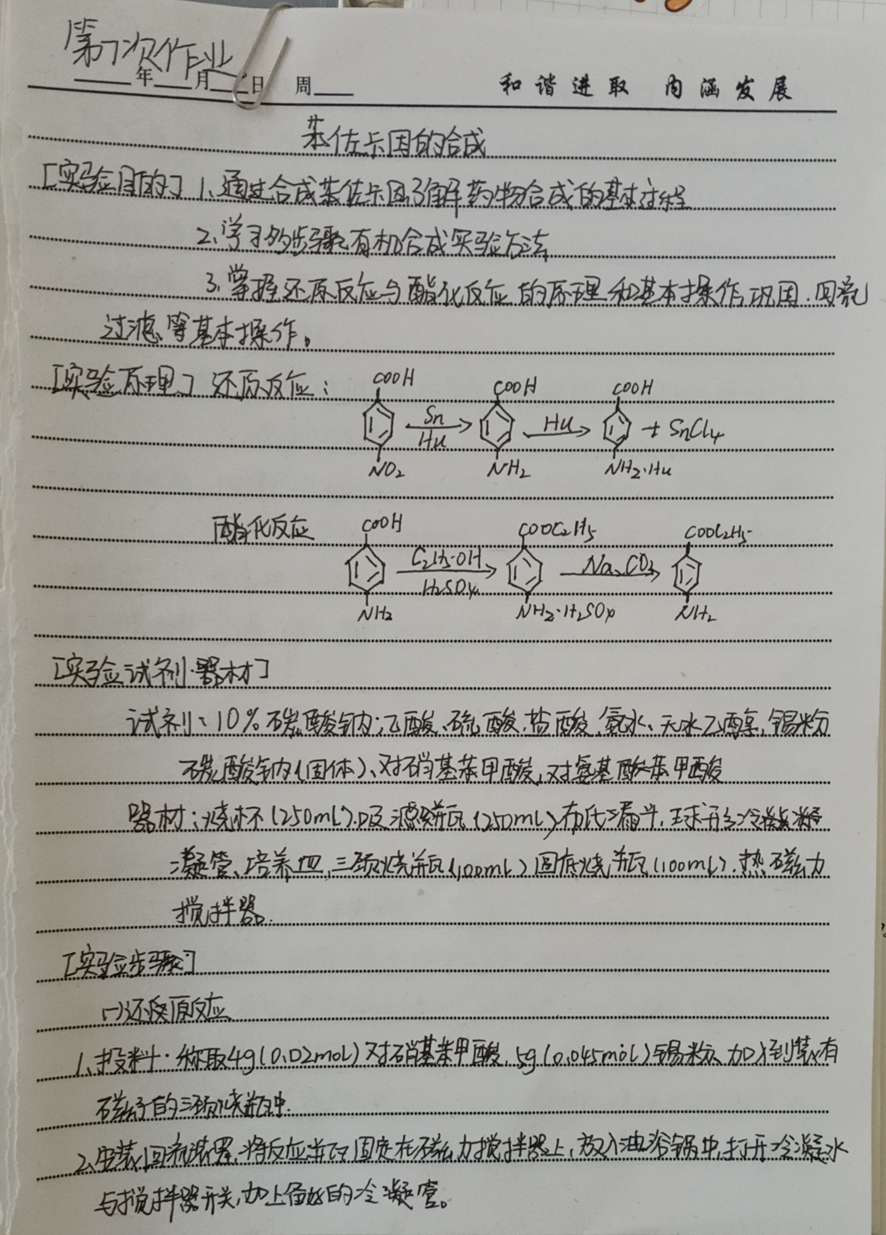 第7次作业
年 月 日 周 和谐进取 内涵发展
苯佐卡因的合成
[实验目的] 1、通过合成苯佐卡因了解药物合成的基本过程
2、学习多步骤有机合成实验方法
3、掌握还原反应与酯化反应的原理和基本操作,巩固.回流
过滤等基本操作。
[实验原理] 还原反应:
COOH COOH COOH
Sn HCl HCl + SnCl4
NO2 NH2 NH2·HCl
酯化反应 COOH COOC2H5 COOC2H5
C2H5OH H2SO4 Na2CO3
NH2 NH2·H2SO4 NH2
[实验试剂·器材]
试剂:10%碳酸钠;乙酸、硫酸、盐酸、氨水、无水乙醇,锡粉
碳酸钠(固体)、对硝基苯甲酸,对氨基苯甲酸
器材:烧杯(250mL).吸滤瓶(250mL)布氏漏斗,球形冷凝
凝管、培养皿,三颈烧瓶(100mL)圆底烧瓶(100mL).热磁力
搅拌器.
[实验步骤]
(一)还原反应
1、投料·称取4g(0.02mol)对硝基苯甲酸,5g(0.045mol)锡粉、加入到装有
磁子的三颈烧瓶中.
2、安装回流装置,将反应瓶固定在磁力搅拌器上,放入油浴锅中,打开冷凝水
与搅拌器开关,加上的冷凝管。